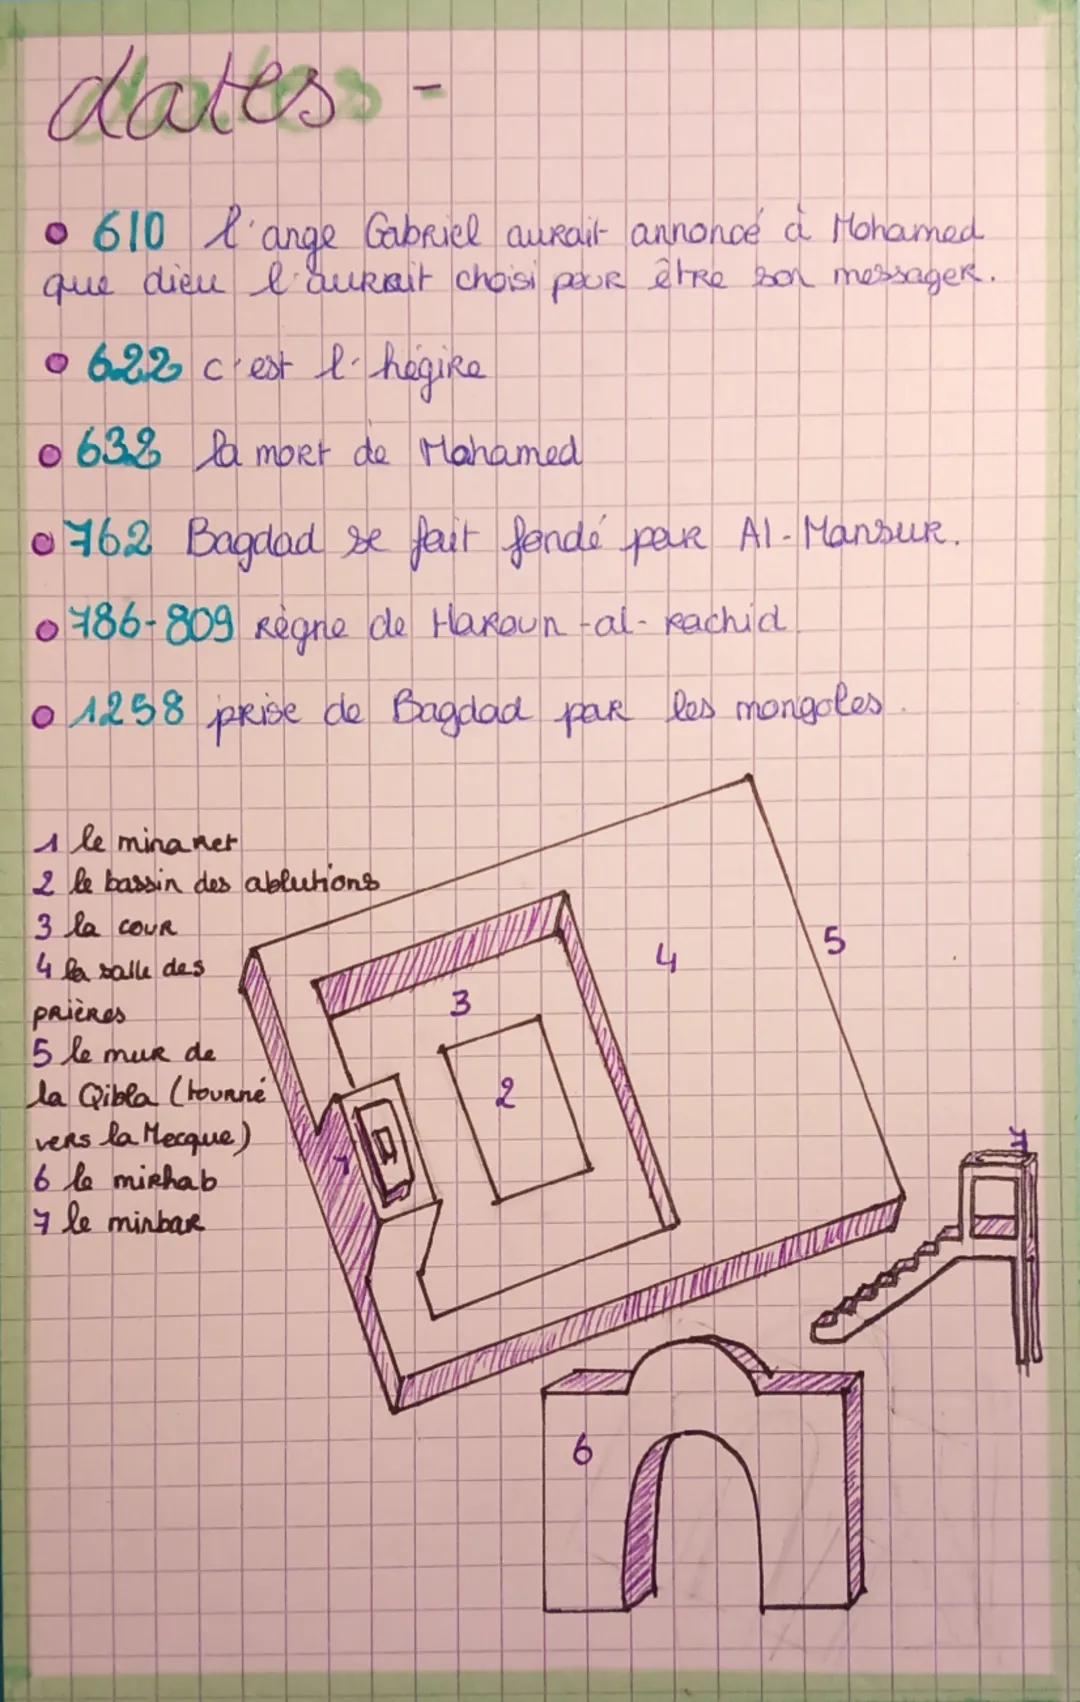 dates -
610 l'ange Gabriel aurait annoncé à Mohamed
que dieu l'aurait choisi pour être son messager.
622 c'est l'hégire
632 la mort de Mohamed
762 Bagdad se fait fondé par Al-Mansur.
786-809 règne de Haroun-al-rachid
1258 prise de Bagdad par les mongoles.
1 le minaret
2 le bassin des ablutions
3 la cour
4 la salle des
prières
5 le mur de
la Qibla (tourné
vers la Mecque)
6 le mirhab
7 le minbar
4
5
3
2
1
7
6